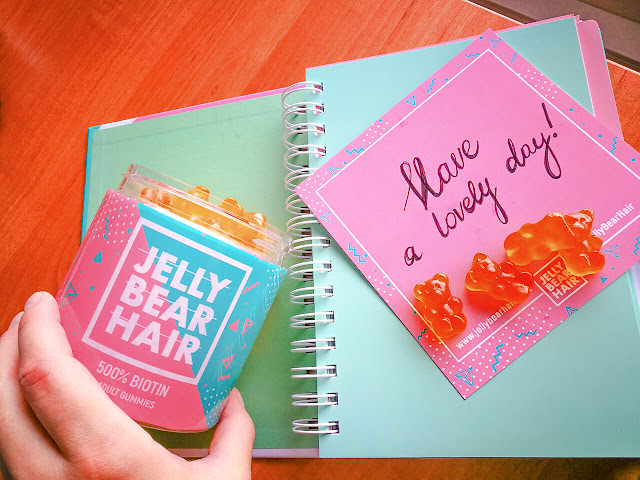 JELLY
BEAR
HAIR
500% BIOTIN
ADULT GUMMIES
Have
a lovely day!
JELLY
BEAR
HAIR
www.jellybearhair